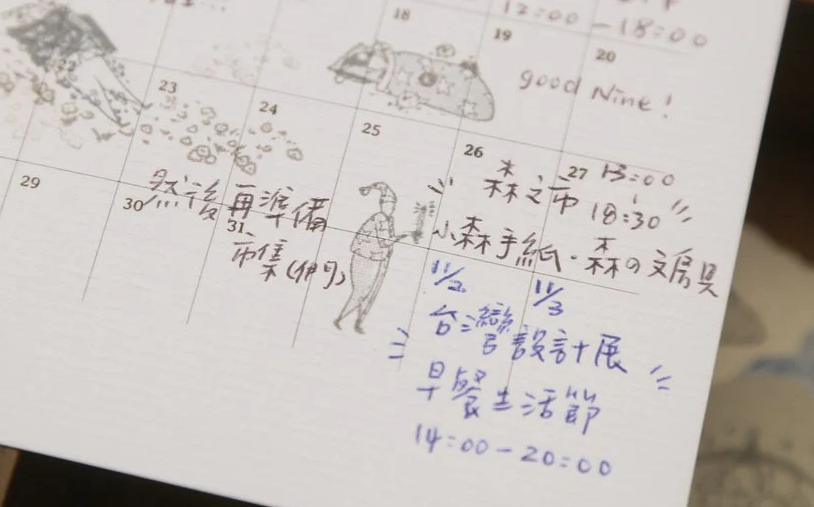 12:00-18:00
18
19
20
good Nine!
22
23
24
25
26
27
13:00
森之市
18:30
29
30
然後再準備
31
市集(併月)
小森手紙・森の文房具
11/2
11/3
台灣設計展
早餐生活節
14:00-20:00